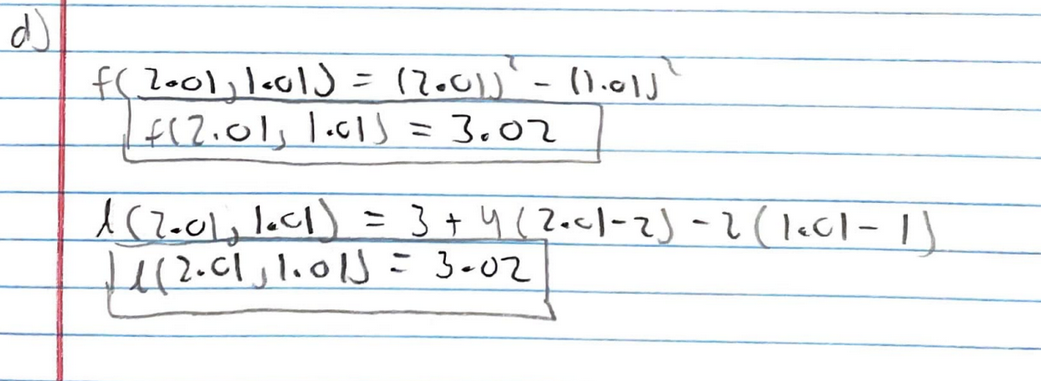 d)
f(2.01, 1.01) = (2.01)² - (1.01)²
f(2.01, 1.01) = 3.02
l(2.01, 1.01) = 3 + 4(2.01-2) - 2(1.01-1)
l(2.01, 1.01) = 3.02